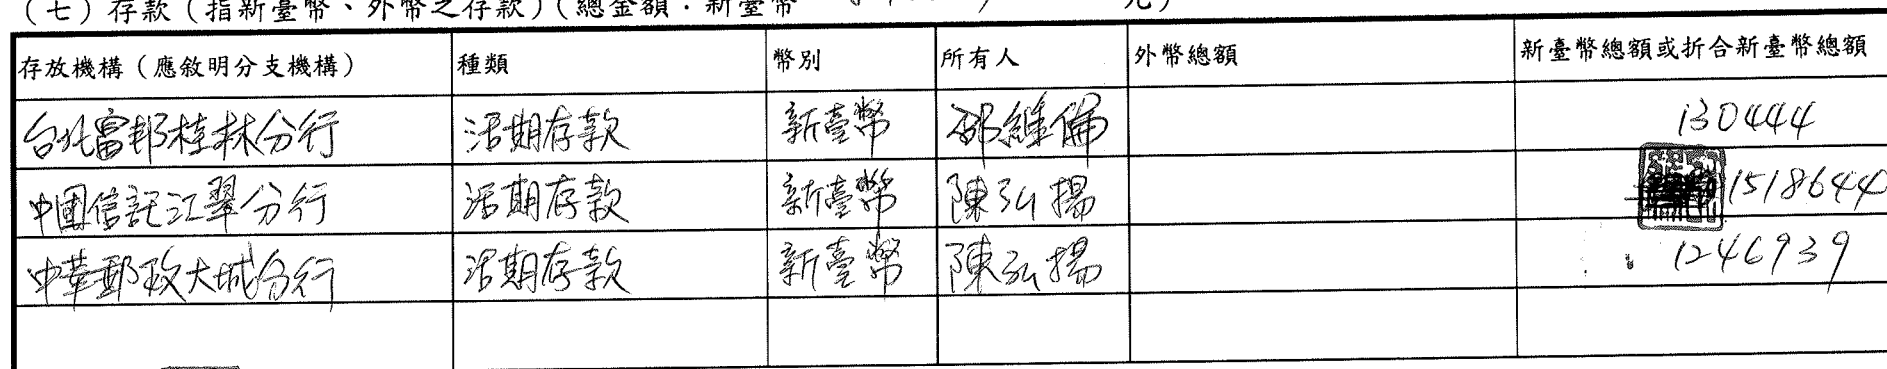 （七）存款（指新臺幣、外幣之存款）（總金額：新臺幣 元）
存放機構（應敘明分支機構） 種類 幣別 所有人 外幣總額 新臺幣總額或折合新臺幣總額
台北富邦桂林分行 活期存款 新臺幣 邵維倫 130444
中國信託江翠分行 活期存款 新臺幣 陳弘揚 1518644
中華郵政大城分行 活期存款 新臺幣 陳弘揚 1246939